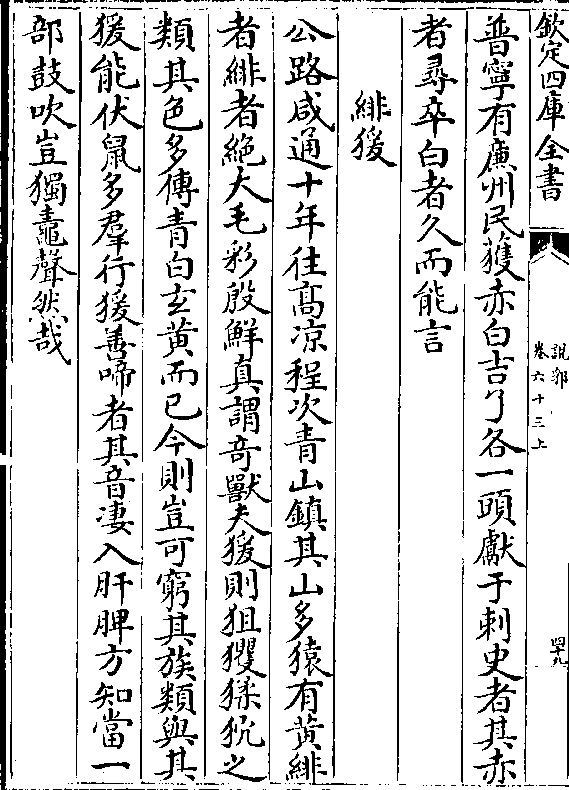 欽定四庫全書
說郛
卷六十三上
四十九
普寧有廉州民獲赤白吉了各一頭獻于刺史者其赤
者尋卒白者久而能言
緋猨
公路咸通十年往髙凉程次青山鎮其山多猿有黄緋
者緋者絶大毛彩殷鮮真謂竒獸夫猨則狙玃猱狖之
類其色多傳青白玄黄而已今則豈可窮其族類與其
猨能伏鼠多羣行猨善啼者其音凄入肝脾方知當一
部鼓吹豈獨鼃聲然哉